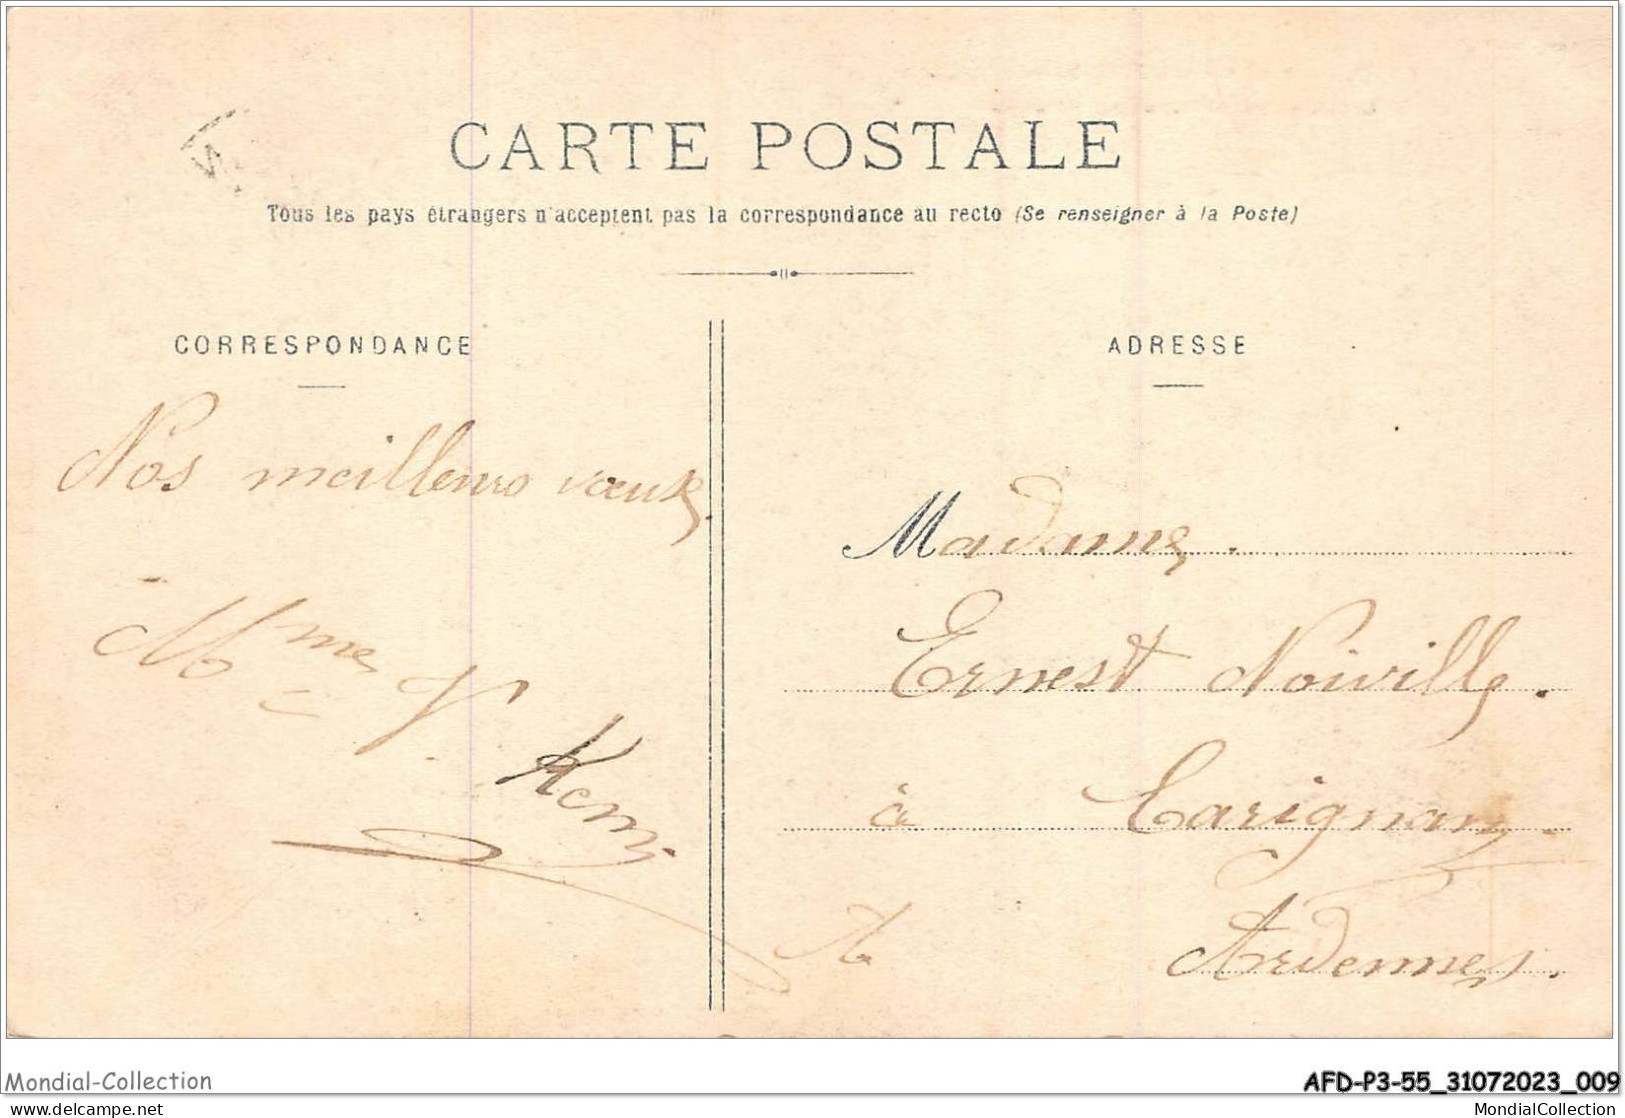 CARTE POSTALE
Tous les pays étrangers n'acceptent pas la correspondance au recto (Se renseigner à la Poste)
CORRESPONDANCE
Nos meilleurs vœux.
Mme V.
ADRESSE
Madame
Ernest Noiville.
à Carignan
Ardennes.
Mondial-Collection
AFD-P3-55_31072023_009
delcampe.net
MondialCollection